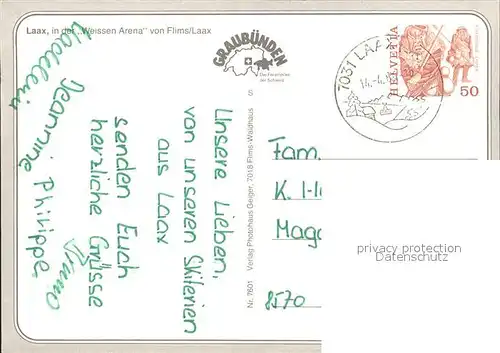 Laax, in der „Weissen Arena" von Flims/Laax
GRAUBÜNDEN
Die Ferienecke
der Schweiz
7031 LAAX
HELVETIA
50
S
Nr. 7601 Verlag Photohaus Geiger, 7018 Flims-Waldhaus
Unsere Lieben,
von unseren Skiferien
aus Laax
senden Euch
herzliche Grüsse
Jeannine Philippe
Fam.
K.
8570
privacy protection
Datenschutz